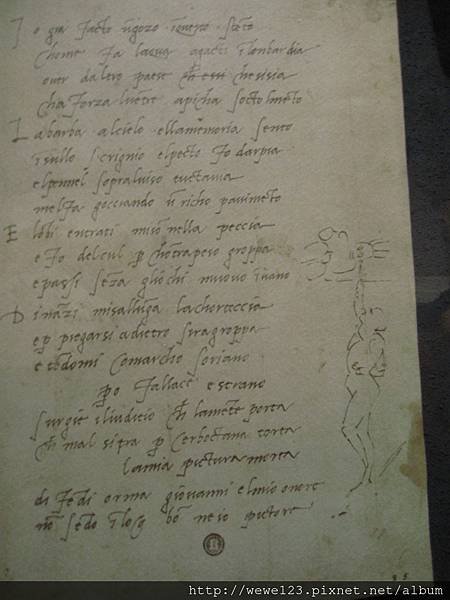 I o gia facto ngozo i questo stēto
chome fa lacqua agacti i lombardia
over daltro paese ch essi chesisia
cha forza lventre apicha sotto lmēto
L a barba alcielo ellamemoria sento
isullo scrignio elpecto fo darpia
elpennel sopraluiso tuctavia
melfa gocciando u richo pavimēto
E lōbi entrati miso nella peccia
e fo delcul p chōtrapeso groppa
epassi sēza gliochi muovo invano
D inazi misallunga lachorteccia
ep piegarsi adietro siragroppa
e tēdomi comarcho soriano
po fallace e strano
surgie iliuditio ch lamēte porta
ch mal sitra p cerboctana torta
lamia pictura morta
difēdi orma giovanni elmio onore
nō sēdo ilog bō ne io pictore
http://wewe123.pixnet.net/album